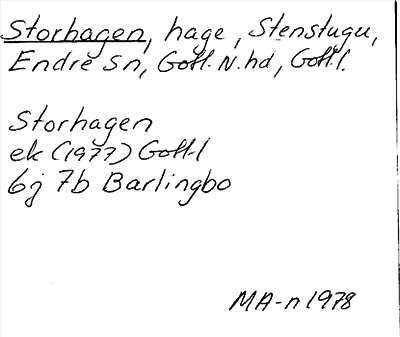 Storhagen, hage, Stenstugu,
Endre Sn, Gotl. N. hd, Gotl. l.
Storhagen
ek (1977) Gotl. l
6j 7b Barlingbo
MA-n 1978